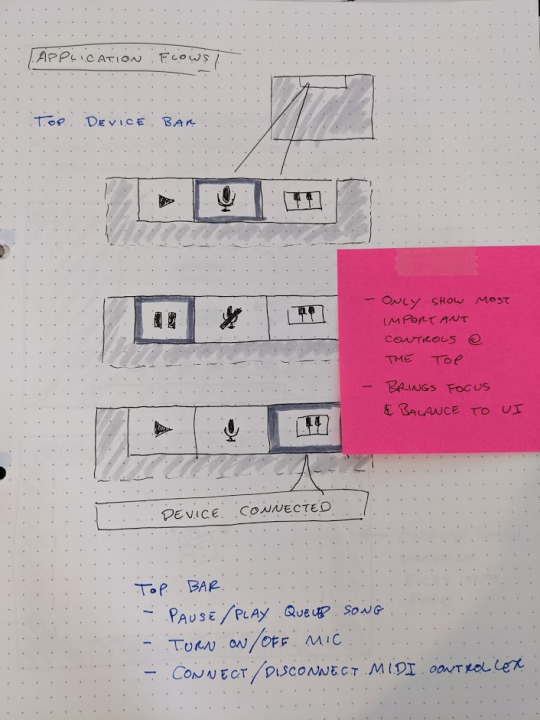 APPLICATION FLOWS
TOP DEVICE BAR
- ONLY SHOW MOST
IMPORTANT
CONTROLS @
THE TOP
- BRINGS FOCUS
& BALANCE TO UI
DEVICE CONNECTED
TOP BAR
- PAUSE/PLAY QUEUED SONG
- TURN ON/OFF MIC
- CONNECT/DISCONNECT MIDI CONTROLLER